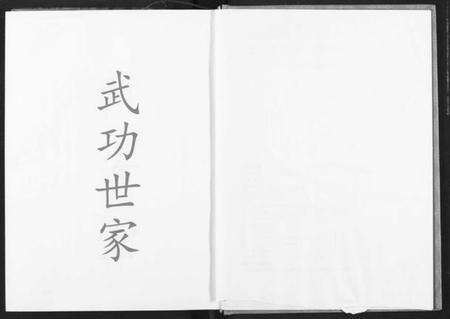 武功世家